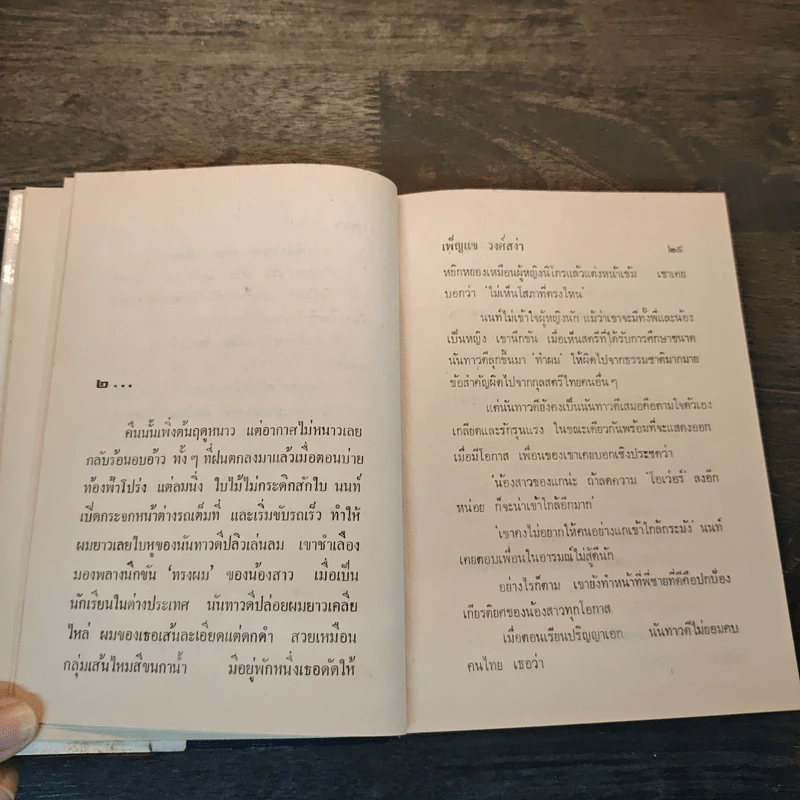 ๒...
คืนนั้นเพิ่งต้นฤดูหนาว แต่อากาศไม่หนาวเลย
กลับร้อนอบอ้าว ทั้งๆ ที่ฝนตกลงมาแล้วเมื่อตอนบ่าย
ท้องฟ้าโปร่ง แต่ลมนิ่ง ใบไม้ไม่กระดิกสักใบ นนท์
เปิดกระจกหน้าต่างรถเต็มที่ และเริ่มขับรถเร็ว ทำให้
ผมยาวเลยใบหูของนันทาวดีปลิวเล่นลม เขาชำเลือง
มองพลางนึกขัน 'ทรงผม' ของน้องสาว เมื่อเป็น
นักเรียนในต่างประเทศ นันทาวดีปล่อยผมยาวเคลีย
ไหล่ ผมของเธอเส้นละเอียดแต่ดกดำ สวยเหมือน
กลุ่มเส้นไหมสีขนกาน้ำ มีอยู่พักหนึ่งเธอดัดให้
เพ็ญแข วงศ์สง่า ๒๕
หยิกหยองเหมือนผู้หญิงนิโกรแล้วแต่งหน้าเข้ม เขาเคย
บอกว่า 'ไม่เห็นโสภาที่ตรงไหน'
นนท์ไม่เข้าใจผู้หญิงนัก แม้ว่าเขาจะมีทั้งพี่และน้อง
เป็นหญิง เขานึกขัน เมื่อเห็นสตรีที่ได้รับการศึกษาขนาด
นันทาวดีลุกขึ้นมา 'ทำผม' ให้ผิดไปจากธรรมชาติมากมาย
ข้อสำคัญผิดไปจากกุลสตรีไทยคนอื่นๆ
แต่นันทาวดียังคงเป็นนันทาวดีเสมอคือตามใจตัวเอง
เกลียดและรักรุนแรง ในขณะเดียวกันพร้อมที่จะแสดงออก
เมื่อมีโอกาส เพื่อนของเขาเคยบอกเชิงประชดว่า
'น้องสาวของแกน่ะ ถ้าลดความ 'โอเว่อร์' ลงอีก
หน่อย ก็จะน่าเข้าใกล้อีกมาก'
'เขาคงไม่อยากให้คนอย่างแกเข้าใกล้กระมัง' นนท์
เคยตอบเพื่อนในอารมณ์ไม่สู้ดีนัก
อย่างไรก็ตาม เขายังทำหน้าที่พี่ชายที่ดีคือปกป้อง
เกียรติยศของน้องสาวทุกโอกาส
เมื่อตอนเรียนปริญญาเอก นันทาวดีไม่ยอมคบ
คนไทย เธอว่า